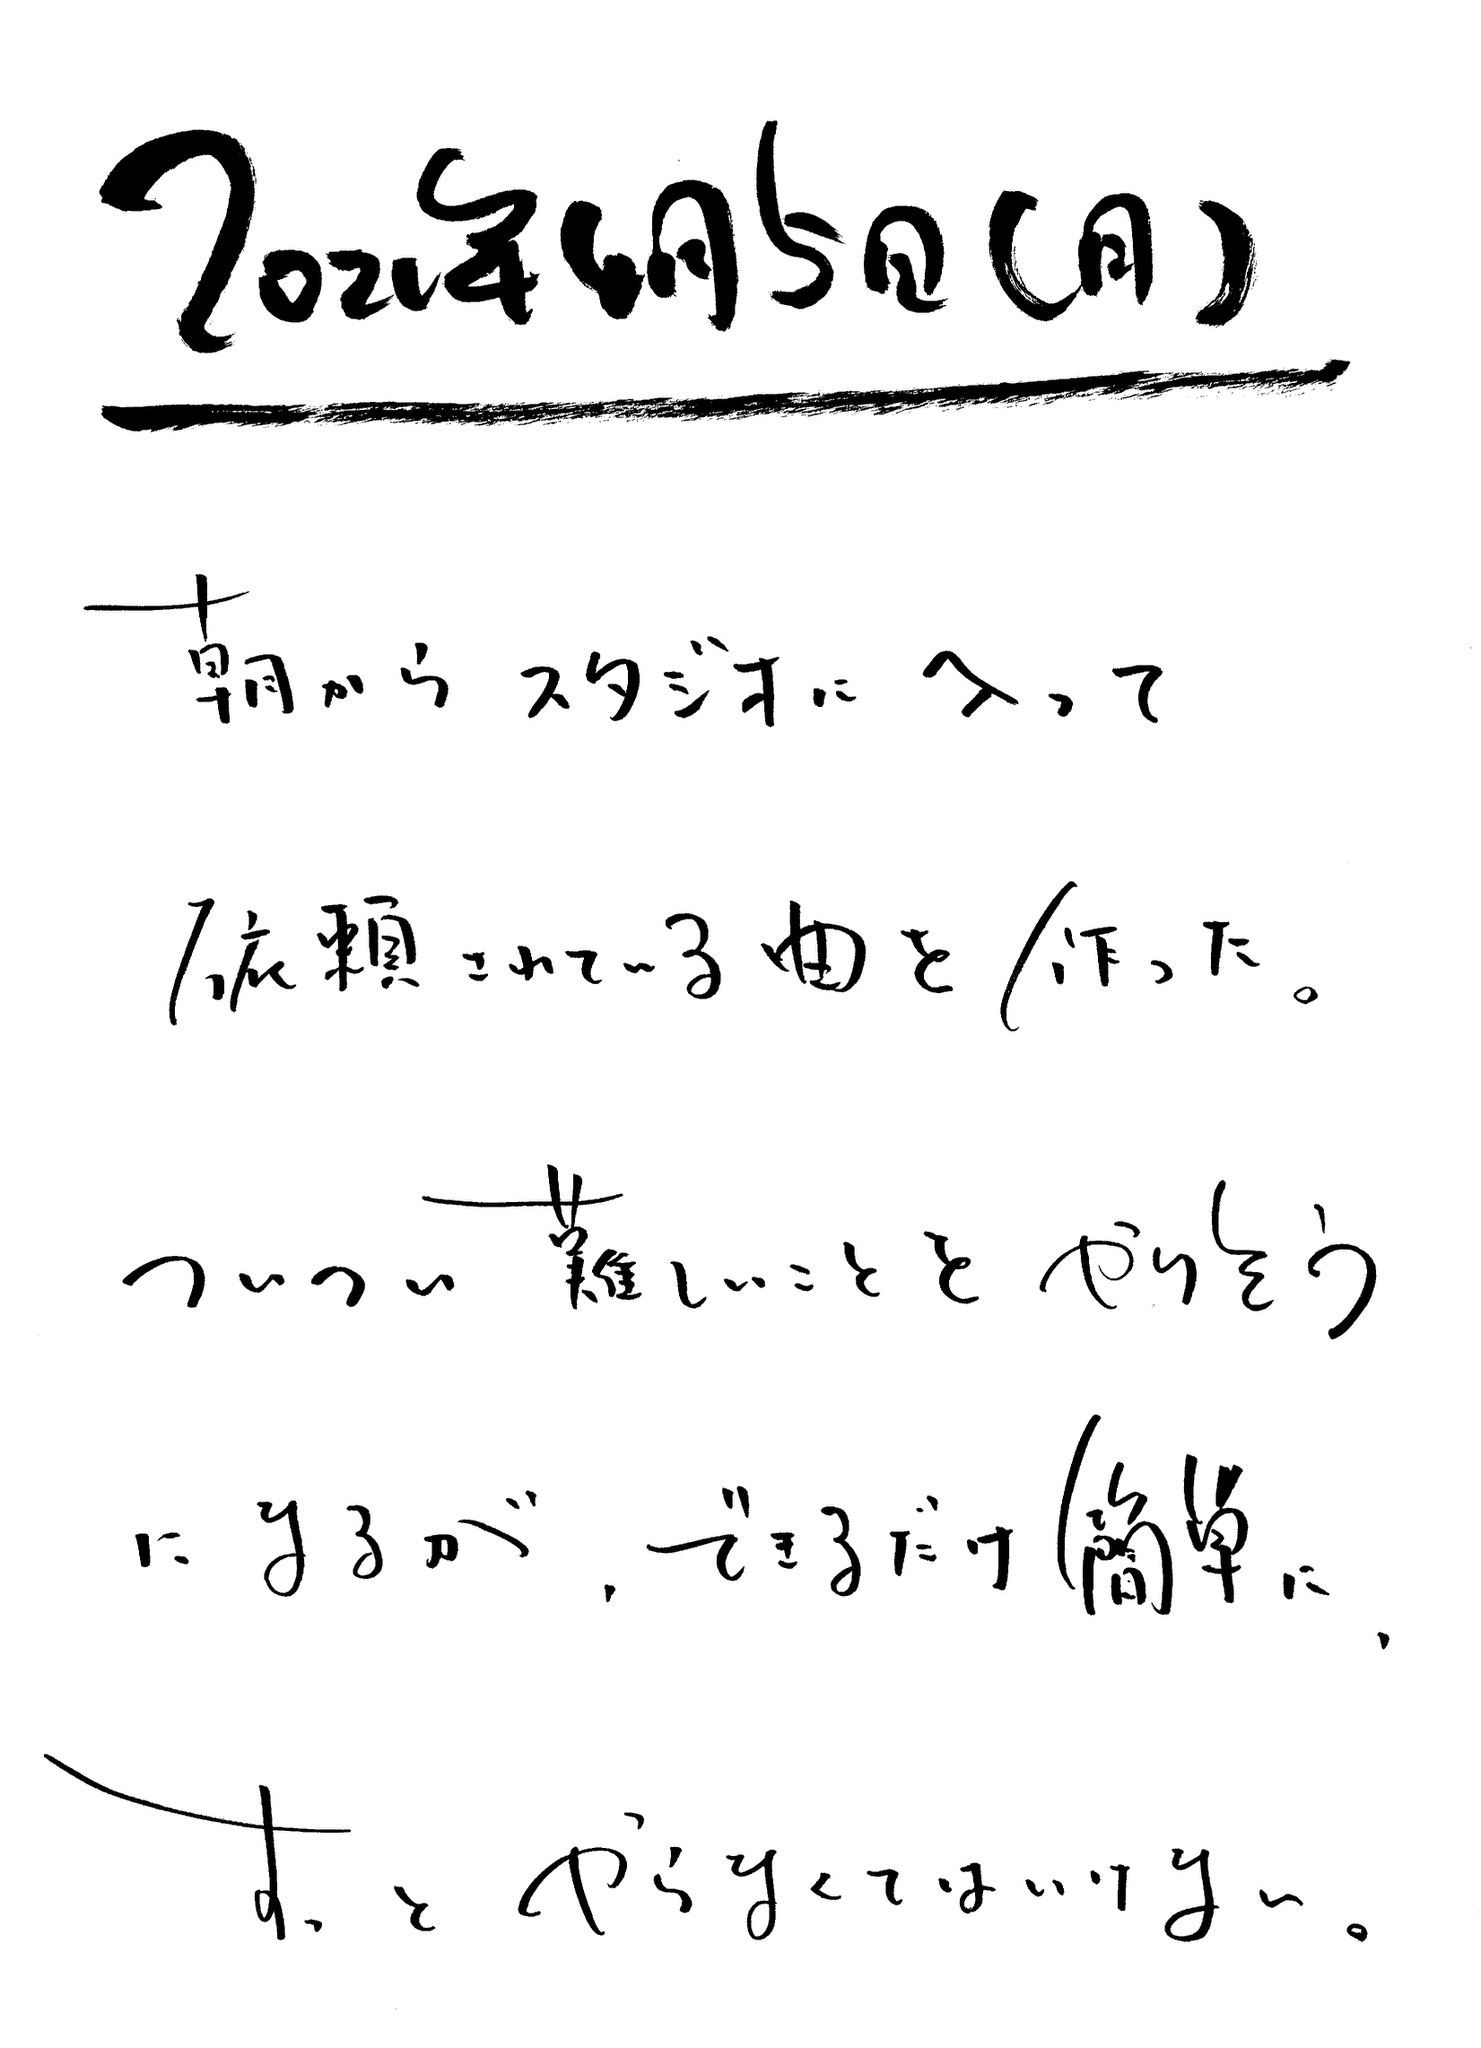 2021年4月5日(月)
朝からスタジオに入って
依頼されている曲を作った。
ついつい難しいことをやりそう
になるが、できるだけ簡単に、
すっとやらなくてはいけない。